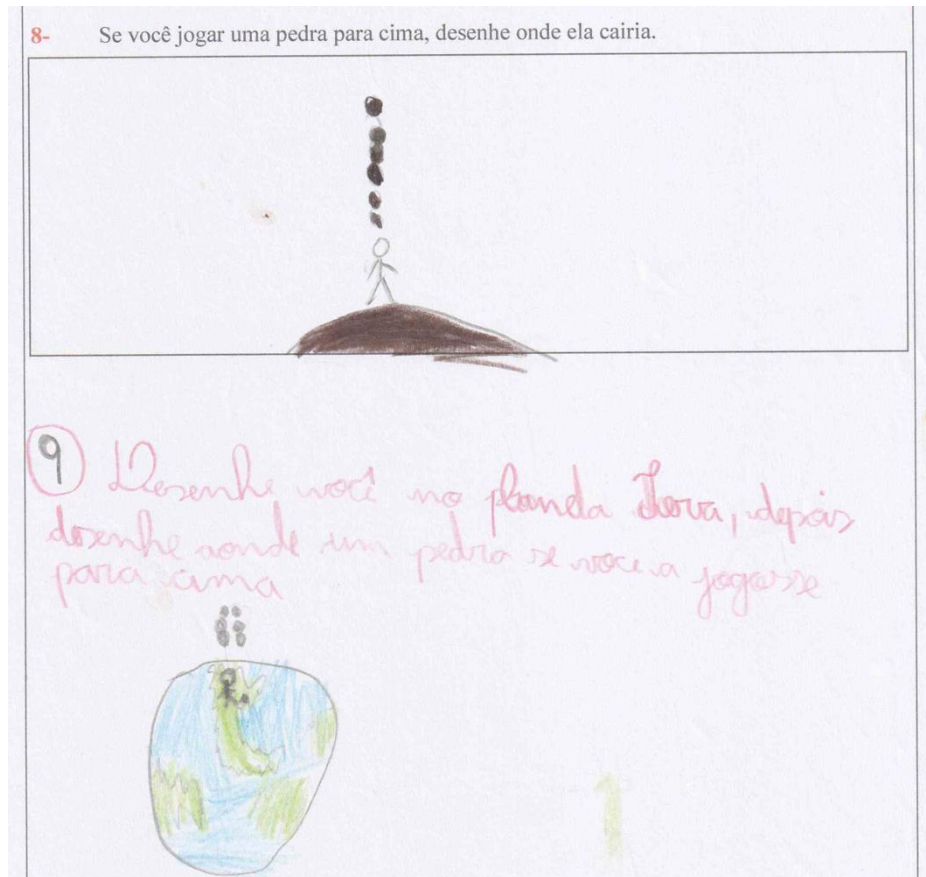 8- Se você jogar uma pedra para cima, desenhe onde ela cairia.
9 Desenhe você no planda Terra, depois
desenhe aonde um pedra se voce a jogasse
para cima